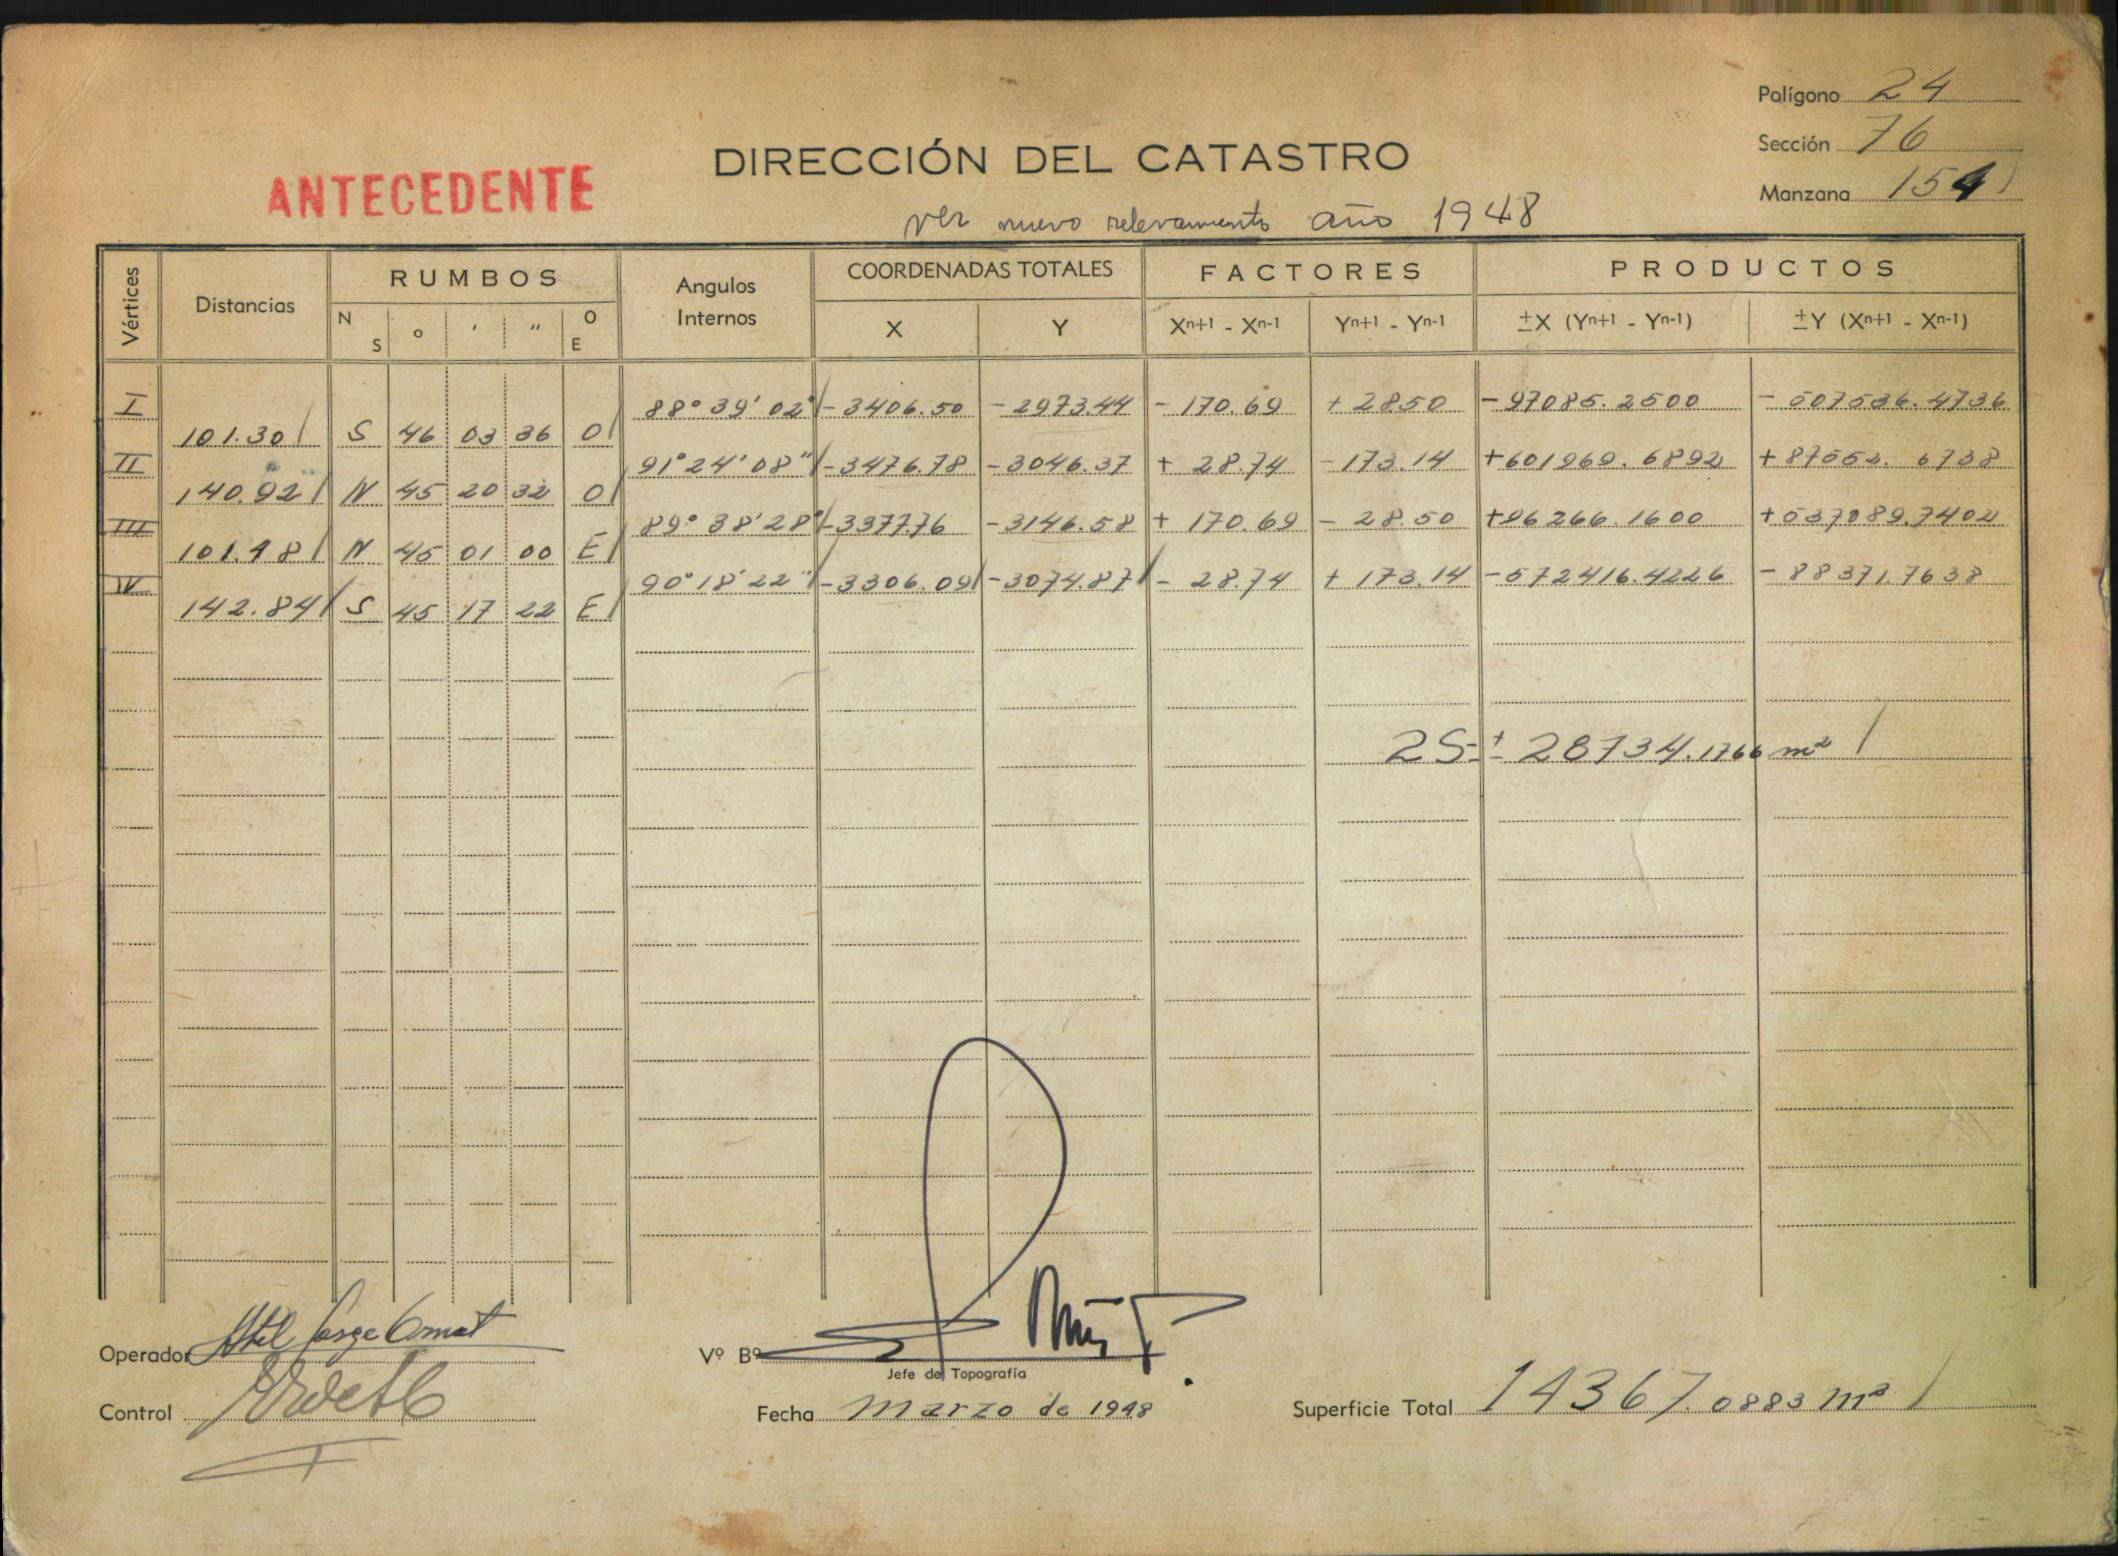 Polígono 24
DIRECCIÓN DEL CATASTRO
Sección 76
ANTECEDENTE
Manzana 154
ver nuevo relevamiento año 1948
Vértices Distancias RUMBOS Angulos Internos COORDENADAS TOTALES FACTORES PRODUCTOS
N S ° ' " O E X Y Xn+1 - Xn-1 Yn+1 - Yn-1 ±X (Yn+1 - Yn-1) ±Y (Xn+1 - Xn-1)
I 88° 39' 02" -3406.50 -2973.44 -170.69 +28.50 -97085.2500 -507536.4736
101.30 S 46 03 36 O
II 91° 24' 08" -3476.78 -3046.37 +28.74 -173.14 +601969.6892 +87552.6738
140.92 N 45 20 32 O
III 89° 38' 28" -3377.76 -3146.58 +170.69 -28.50 +96266.1600 +537089.7402
101.48 N 45 01 00 E
IV 90° 18' 22" -3306.09 -3074.87 -28.74 +173.14 -572416.4226 -88371.7638
142.84 S 45 17 22 E
2S= ± 28734.1766 m²
Operador
Vº Bº
Jefe de Topografía
Control
Fecha Marzo de 1948
Superficie Total 14367.0883 m²